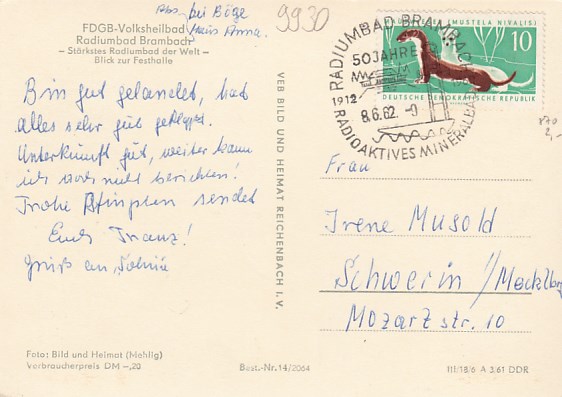 Abs. bei Böge
9930
FDGB-Volksheilbad
Radiumbad Brambach
– Stärkstes Radiumbad der Welt –
Blick zur Festhalle
Bin gut gelandet, hat
alles sehr gut geklappt.
Unterkunft gut, weiter kann
ich noch nicht berichten!
Frohe Pfingsten sendet
Euch Franz!
Gruß an
Foto: Bild und Heimat (Mohlig)
Verbraucherpreis DM –,20
Best.-Nr. 14/2064
VEB BILD UND HEIMAT REICHENBACH I. V.
(MUSTELA NIVALIS)
10
DEUTSCHE DEMOKRATISCHE REPUBLIK
RADIUMBAD BRAMBACH
50 JAHRE
1912
8.6.62
RADIOAKTIVES MINERALBAD
Frau
Irene Musold
Schwerin/Mecklbg
Mozartstr. 10
III/18/6 A 3/61 DDR